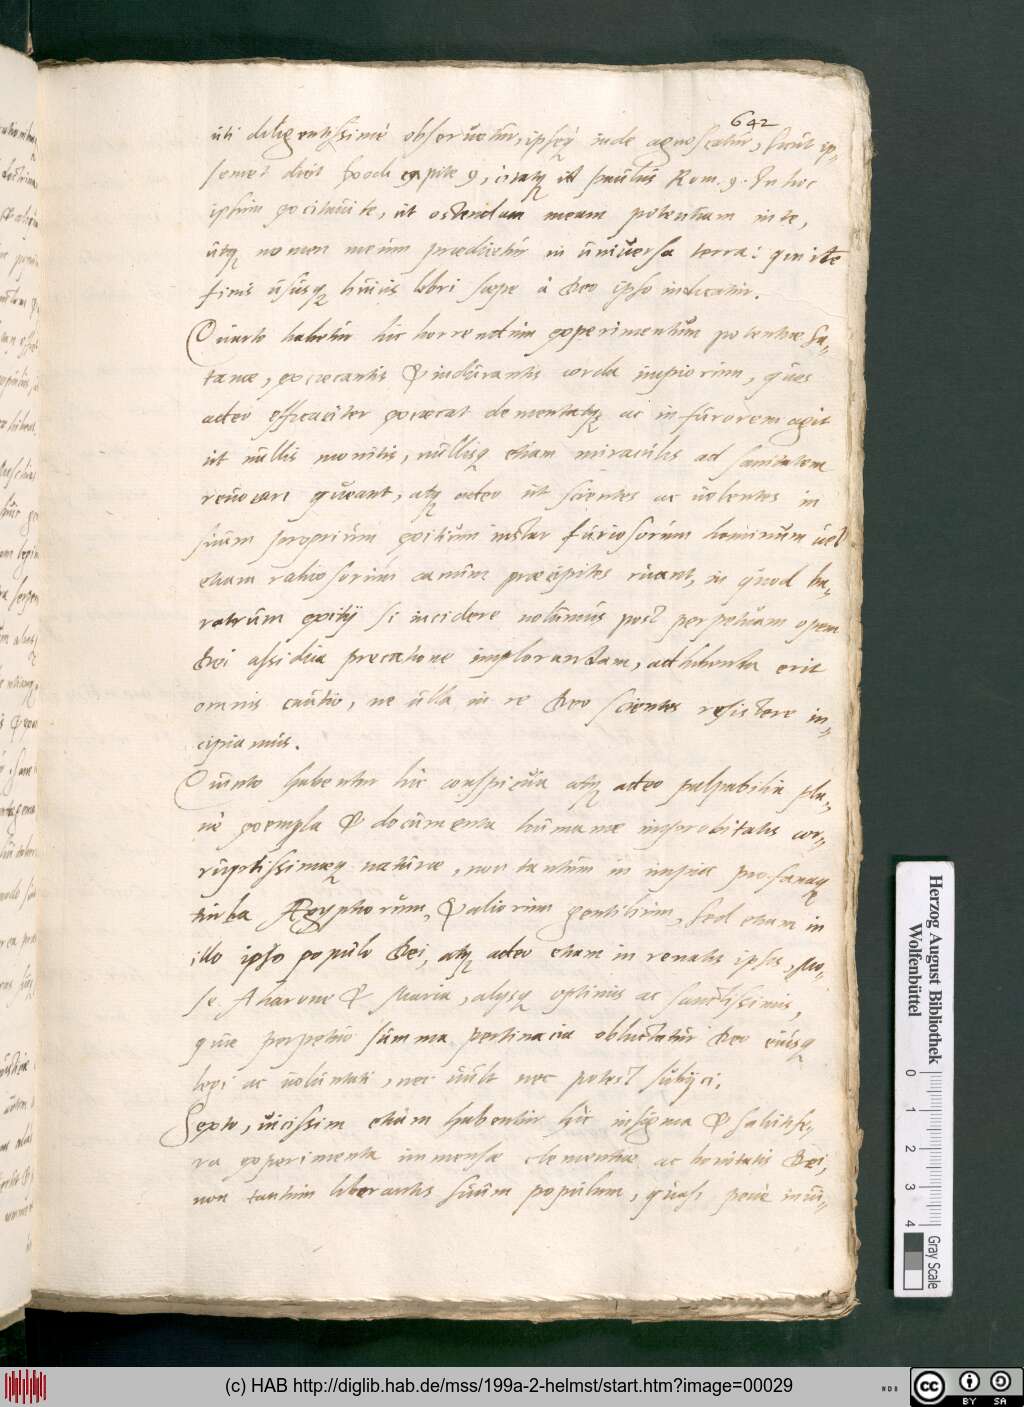 642
uti diligentissimè obseruetur, ipseq; inde agnoscatur, sicut ip=
semet dicit Exodi capite 9, citatq; id Paulus Rom. 9. In hoc
ipsum excitaui te, ut ostendam meam potentiam in te,
utq; nomen meum praedicetur in uniuersa terra: qui
finis ususq; huius libri saepe à Deo ipso indicatur.
Quarto habetur hic horrendum experimentum potentiae Sa=
tanae, excaecantis & indurantis corda impiorum, quos
adeo efficaciter excaecat dementatq; ac in furorem agit
ut nullis monitis, nullisq; etiam miraculis ad sanitatem
reuocari queant, atq; adeo ut scientes ac uolentes in
suum proprium exitium instar furiosorum hominum uel
etiam rabiosorum canum praecipites ruant, in quod ba=
ratrum exitij si incidere nolumus post perpetuam opem
Dei assidua precatione implorandam, adhibenda erit
omnis cautio, ne ulla in re Deo scientes resistere in=
cipiamus.
Quinto habentur hic conspicua atq; adeo palpabilia pla=
nè exempla & documenta humanae improbitatis cor=
ruptissimaeq; naturae, non tantum in impia profanaq;
turba Aegyptiorum, & aliorum gentilium, sed etiam in
illo ipso populo Dei, atq; adeo etiam in renatis ipsis, Mo=
se, Aharone & Maria, alijsq; optimis ac sanctissimis,
quae perpetuo summa pertinacia obluctatur Deo eiusq;
legi ac uoluntati, nec uult nec potest subijci.
Sexto, uicissim etiam habentur hic insignia & salutife=
ra experimenta immensae clementiae ac bonitatis Dei,
non tantum liberantis suum populum, quasi penè inui=
Herzog August Bibliothek
Wolfenbüttel
0 1 2 3 4
Gray Scale
(c) HAB http://diglib.hab.de/mss/199a-2-helmst/start.htm?image=00029
cc
BY SA